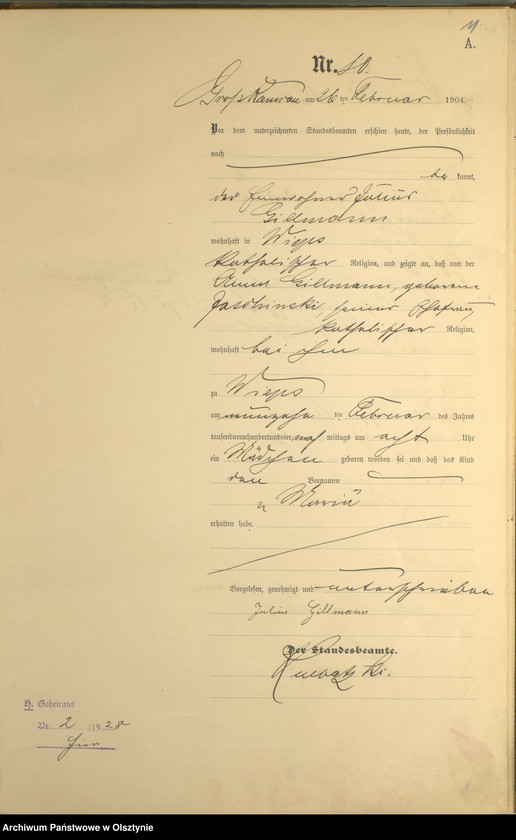 11
A.
Nr. 10.
Groß Kamsau am 26 ten Februar 1904.
Vor dem unterzeichneten Standesbeamten erschien heute, der Persönlichkeit
nach
be kannt,
der Einwohner Julius
Gillmann
wohnhaft in Wieps
katholischer Religion, und zeigte an, daß von der
Anna Gillmann, geborenen
Jaschinski, seiner Ehefrau,
katholischer Religion,
wohnhaft bei ihm
zu Wieps
am neunzehn ten Februar des Jahres
tausendneunhundertundvier, nach mittags um acht Uhr
ein Mädchen geboren worden sei und daß das Kind
den Vornamen
Maria
erhalten habe.
Vorgelesen, genehmigt und unterschrieben
Julius Gillmann
Der Standesbeamte.
H. Geheiratet
Nr. 2 /1928
hier
Archiwum Państwowe w Olsztynie